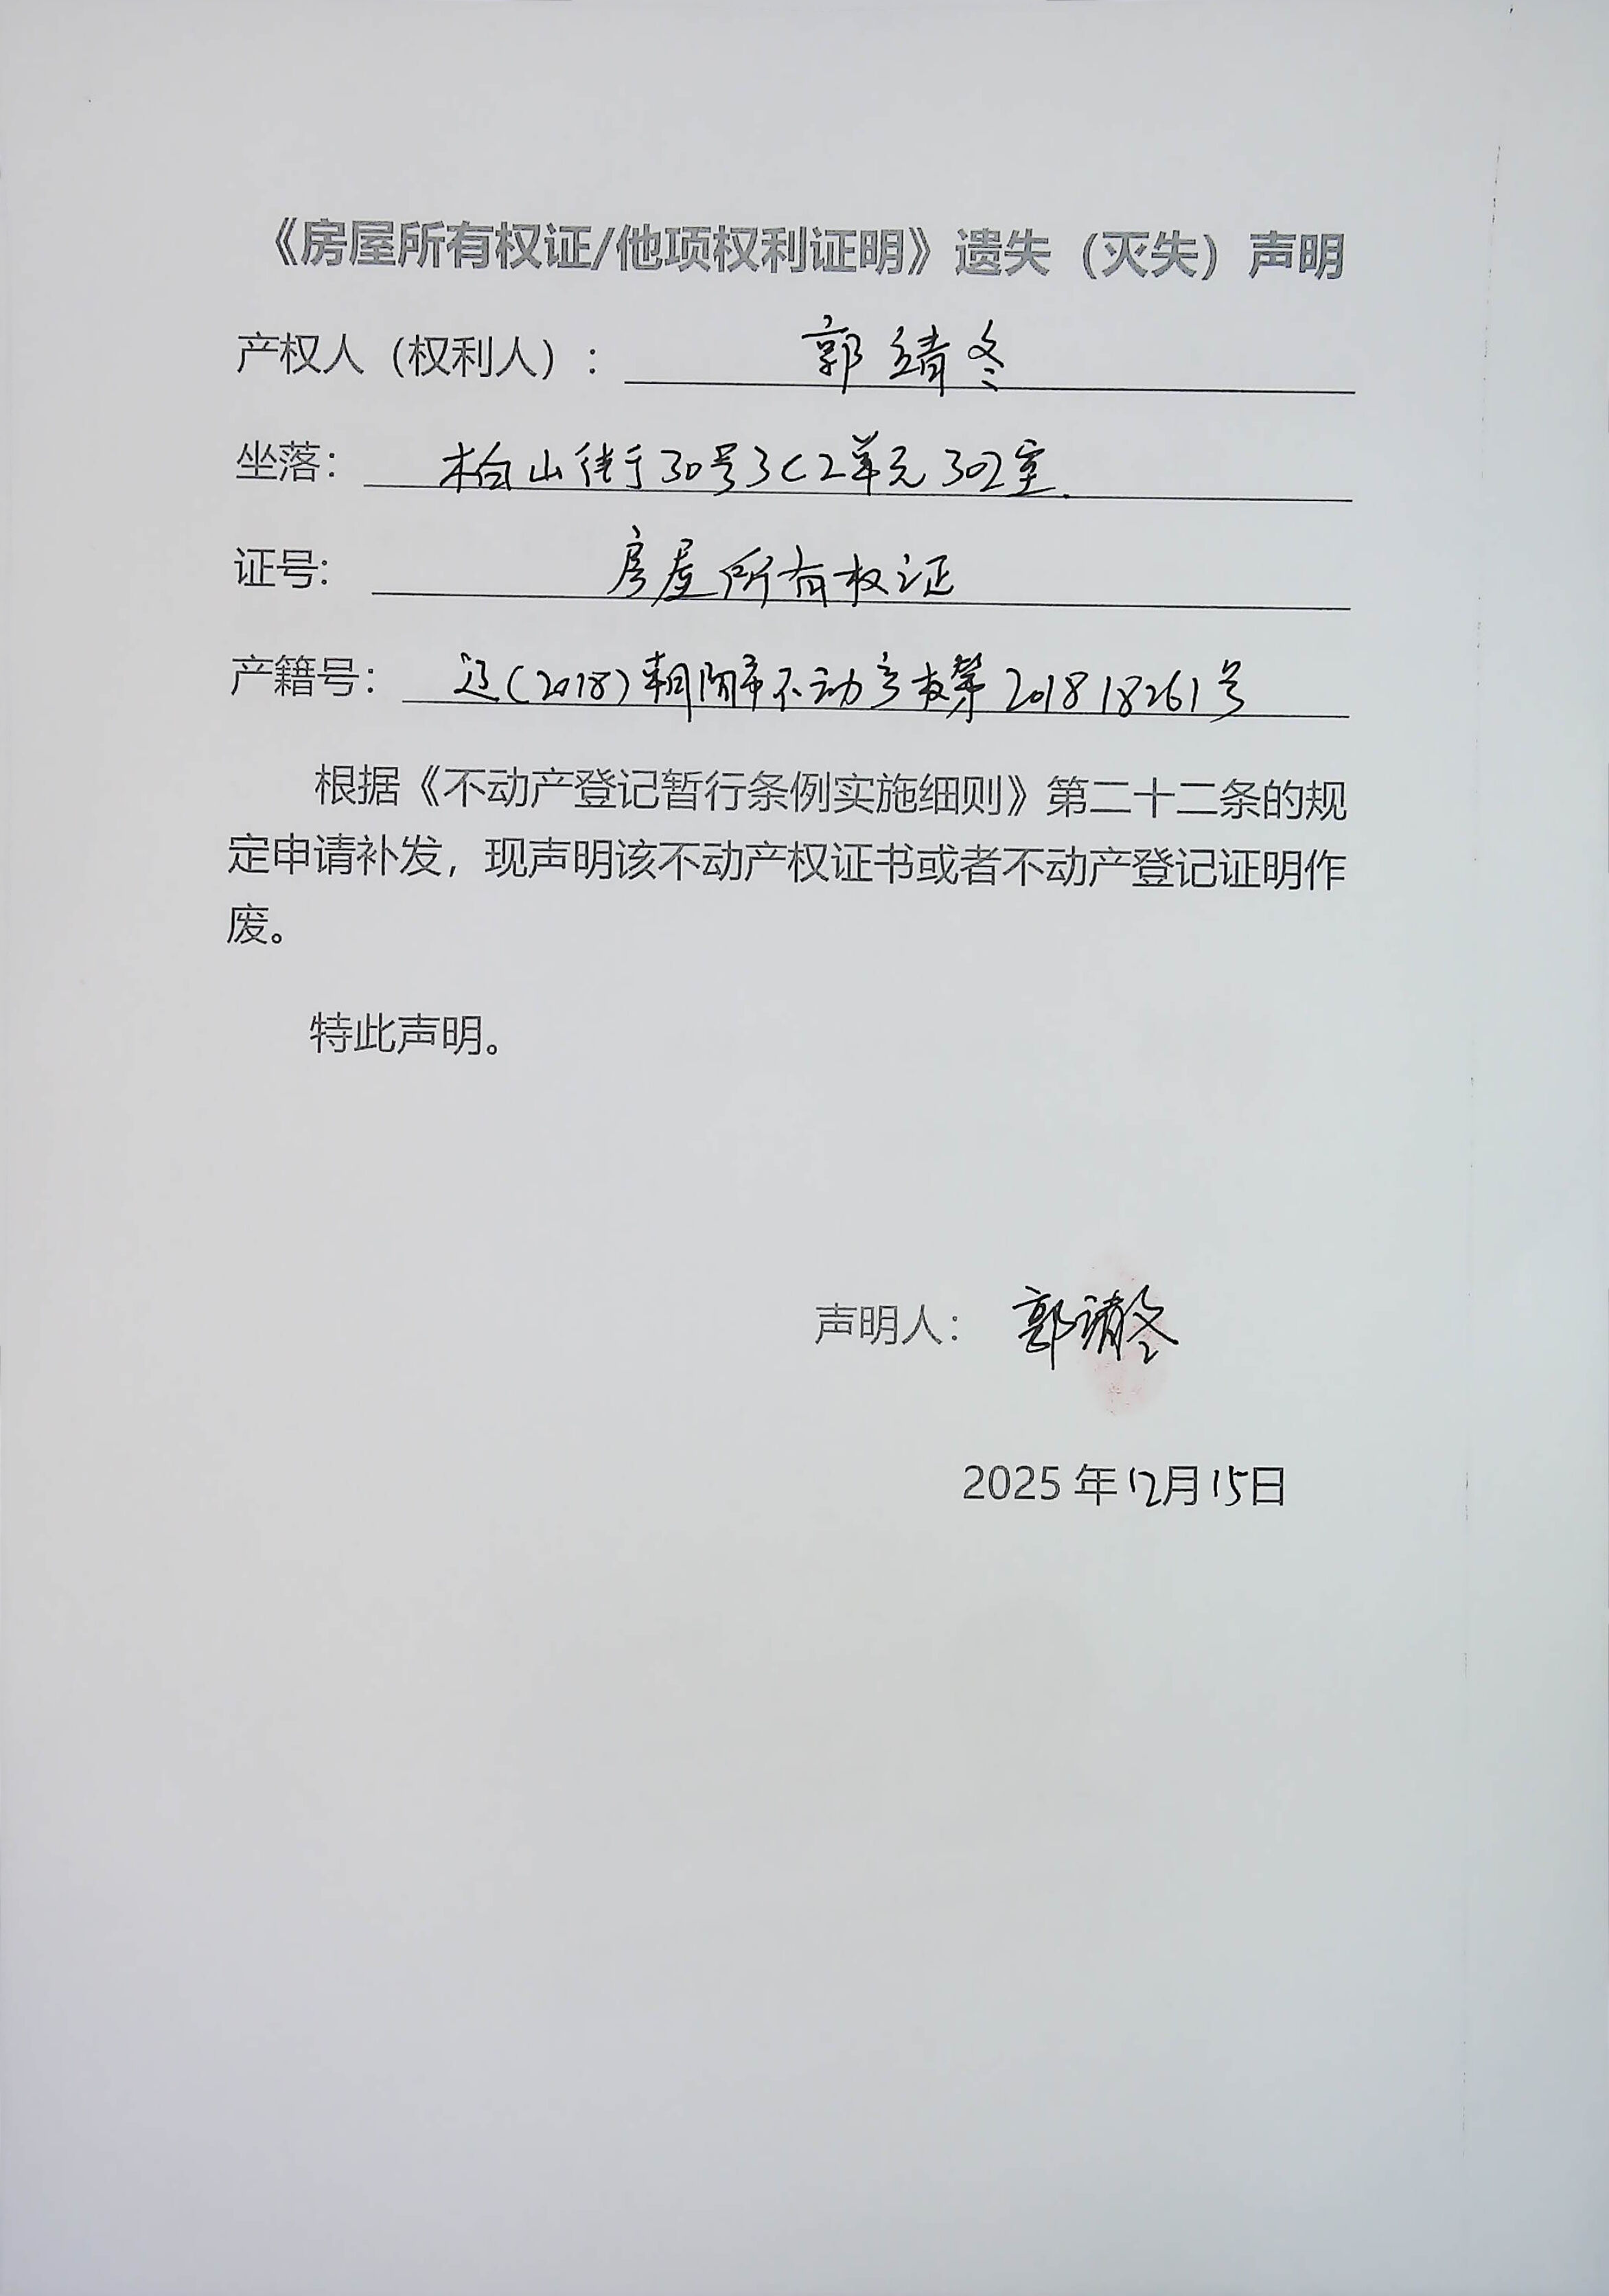 《房屋所有权证/他项权利证明》遗失（灭失）声明
产权人（权利人）：郭靖冬
坐落：柏山街于30号3C2单元302室.
证号：房屋所有权证
产籍号：辽(2018)朝阳市不动产权第20181826 1号
根据《不动产登记暂行条例实施细则》第二十二条的规
定申请补发，现声明该不动产权证书或者不动产登记证明作
废。
特此声明。
声明人：郭靖冬
2025年12月15日